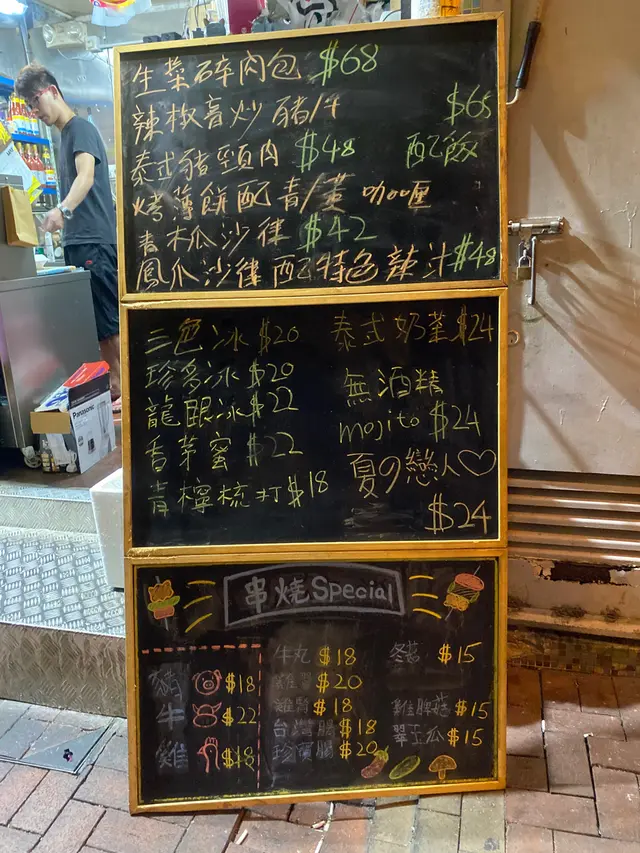 生菜碎肉包 $68
辣椒膏炒豬/牛 $65
泰式豬頸肉 $48 配飯
烤薄餅配青/黃咖喱
青木瓜沙律 $42
鳳爪沙律配特色辣汁 $48
三色冰 $20
珍多冰 $20
龍眼冰 $22
香茅蜜 $22
青檸梳打 $18
泰式奶茶 $24
無酒精
mojito $24
夏の戀人♡
$24
串燒Special
豬 $18
牛 $22
雞 $18
牛丸 $18
$20
$18
台灣腸 $18
珍寶腸 $20
冬菇 $15
雞髀菇 $15
翠玉瓜 $15
Panasonic